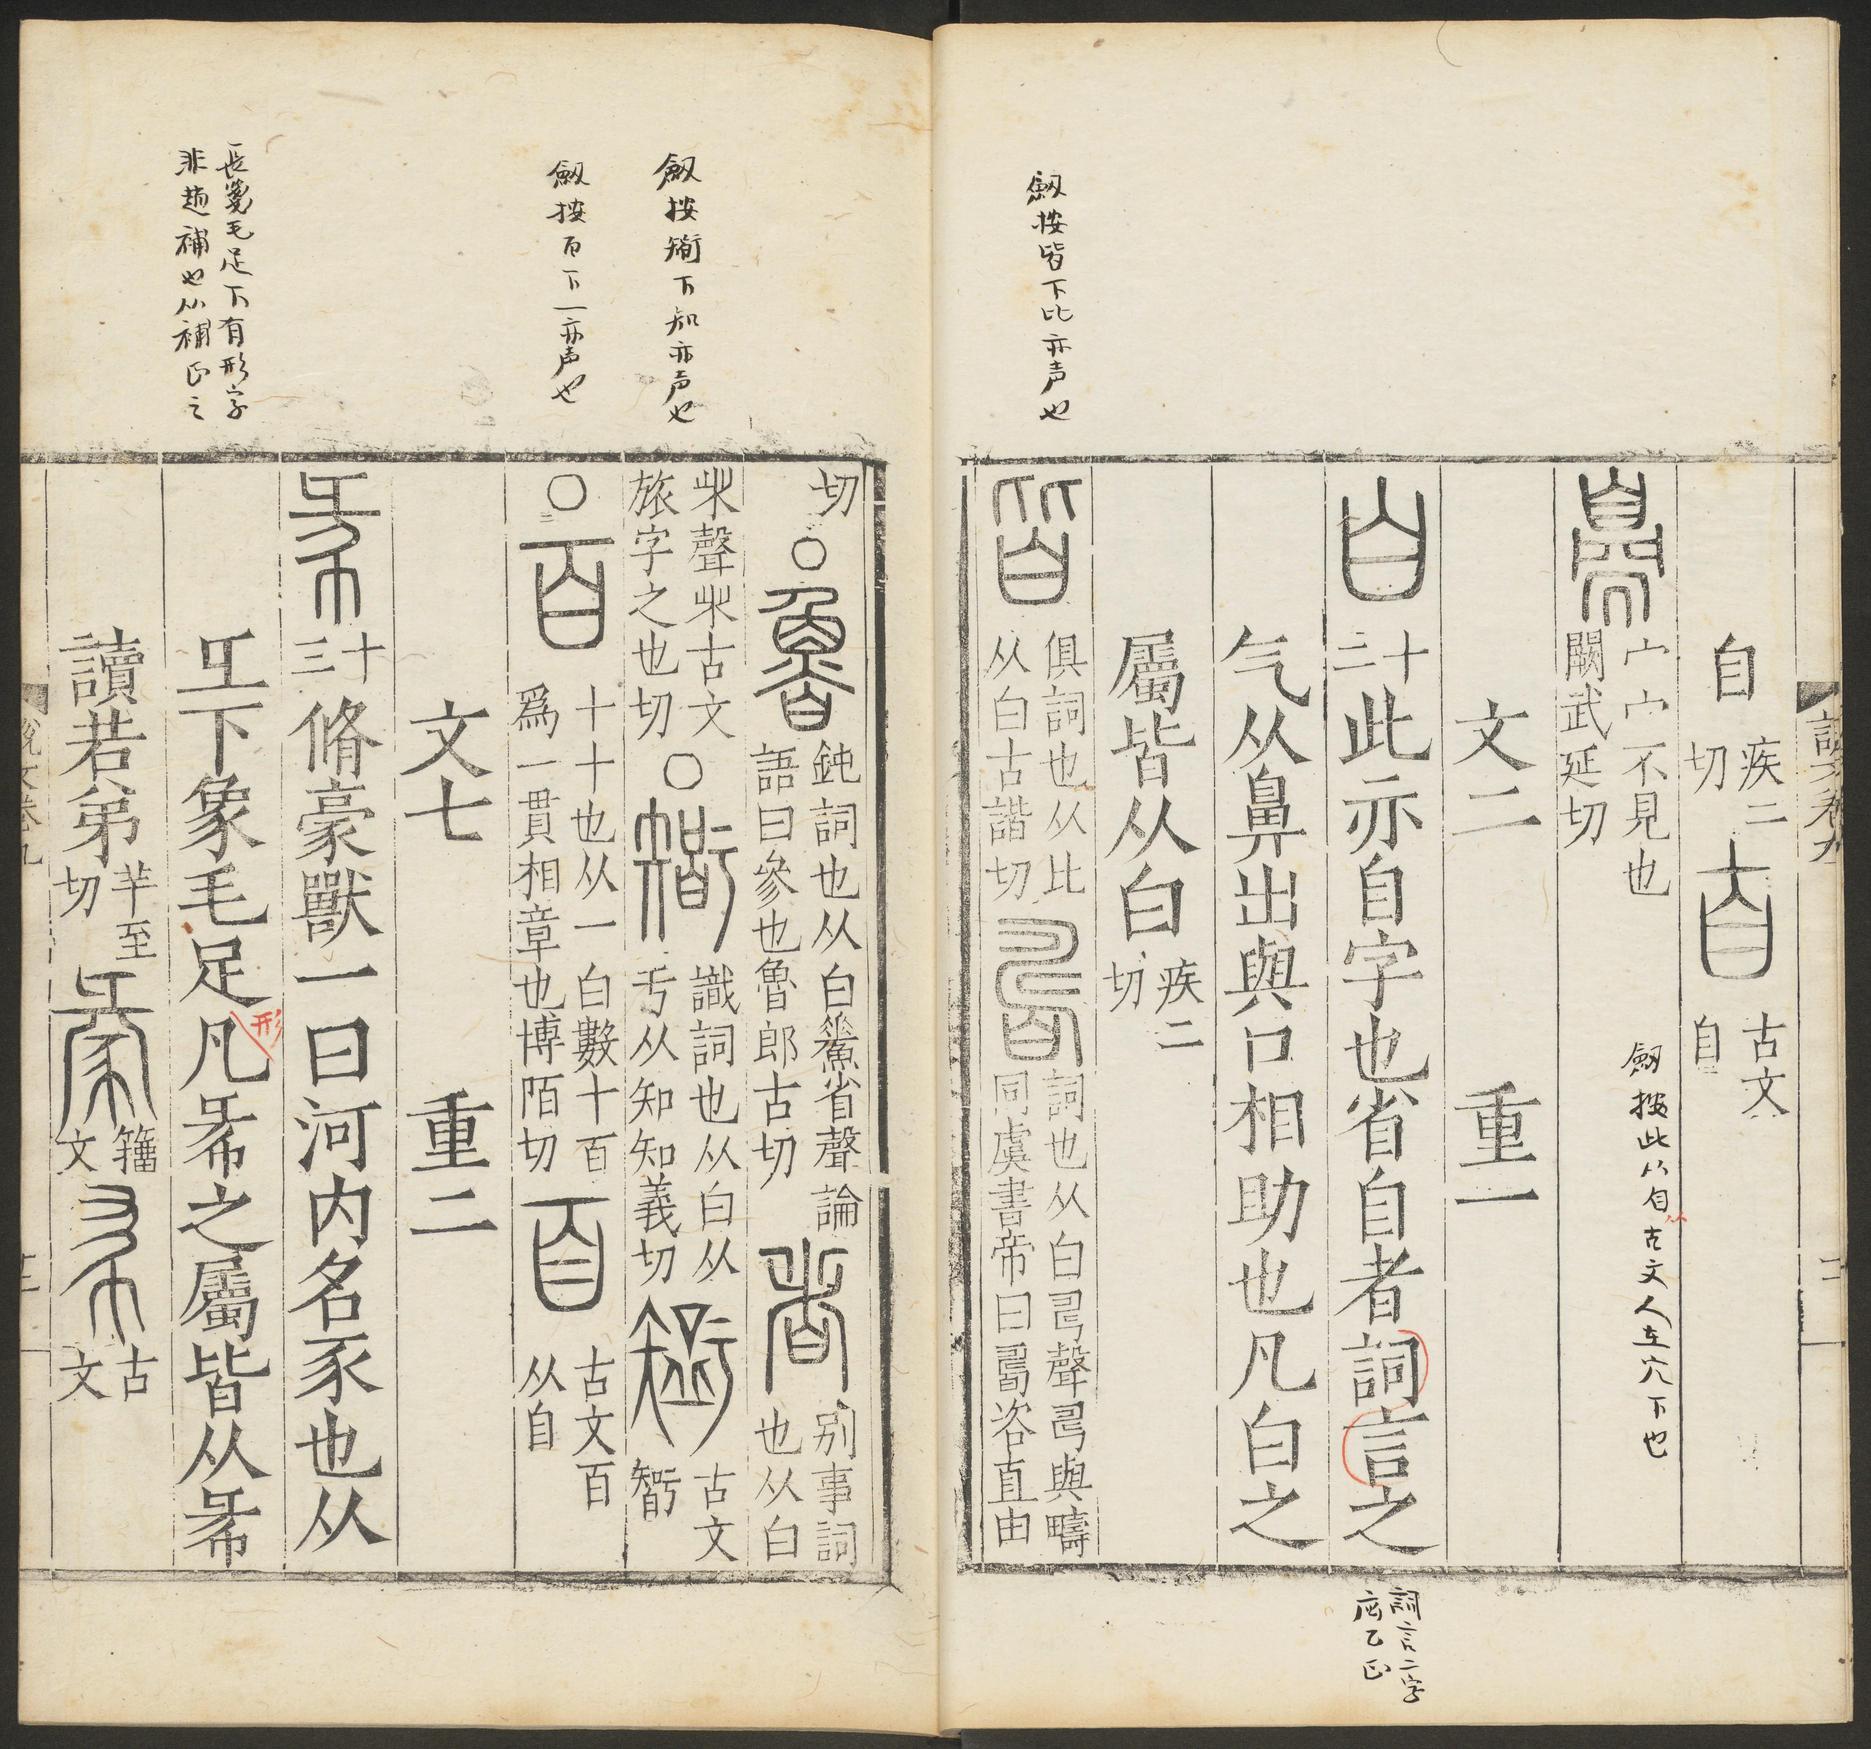 說文卷九
自 疾二切 古文自
宀宀不見也闕武延切
文二 重一
十二 此亦自字也省自者詞言之
气从鼻出與口相助也凡白之
屬皆从白 疾二切
俱詞也从比从白古諧切 詞也从白𠃬聲𠃬與疇同虞書帝曰𠷎咨直由
切〇 鈍詞也从白鮺省聲論語曰參也魯郎古切 別事詞也从白
𣥐聲𣥐古文旅字之也切〇 識詞也从白从亏从知知義切 古文𥏼
〇 十十也从一白數十百爲一貫相章也博陌切 古文百从自
文七 重二
十三 脩豪獸一曰河内名豕也从
彑下象毛足凡㣇之屬皆从㣇
讀若弟 羊至切 籒文 古文
說文卷九
劔按皆下比亦声也
劔按此从自从古文人在穴下也
詞言二字
应乙正
劔按𥏼下知亦声也
劔按百下一亦声也
長箋毛足下有形字
非趙補也从補正之
形